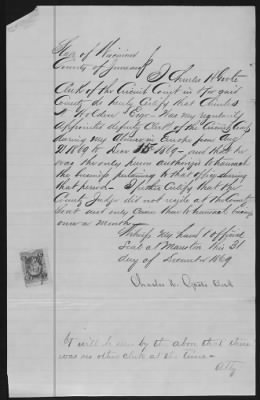 State of Wisconsin
County of Juneau
I Charles H Grote
Clerk of the Circuit Court in & for said
County do hereby Certify that Charles
Holden Esqr Was my regularly
Appointed deputy Clerk of the Circuit Court
during my Absence in Europe from
21 1869 to 15 1869 and that he
was the only person authorized to transact
the business pertaining to that office during
that period. I further Certify that the
County Judge did not reside at the County
Seat and only Came there to transact business
once a month
Witness my hand & official
Seal at Mauston this 21
day of December 1869
Charles H. Grote Clerk
It will be seen by the above that there
was no other clerk at the time
Atty